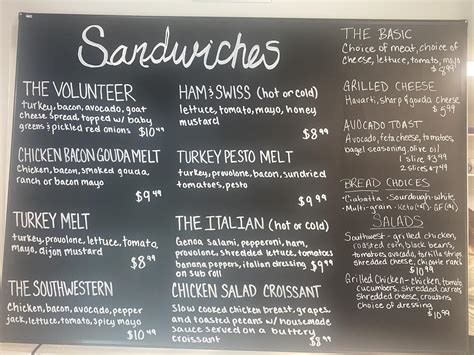 Sandwiches
THE VOLUNTEER
turkey, bacon, avocado, goat
cheese spread topped w/ baby
greens & pickled red onions $10.49
CHICKEN BACON GOUDA MELT
Chicken, bacon, smoked gouda,
ranch or bacon mayo
$9.49
TURKEY MELT
turkey, provolone, lettuce, tomato,
mayo, dijon mustard
$8.99
THE SOUTHWESTERN
Chicken, bacon, avocado, pepper
jack, lettuce, tomato, spicy mayo
$10.49
HAM & SWISS (hot or cold)
lettuce, tomato, mayo, honey
mustard
$8.99
TURKEY PESTO MELT
turkey, provolone, bacon, sundried
tomatoes, pesto
$9.99
THE ITALIAN (hot or cold)
Genoa Salami, pepperoni, ham,
provolone, shredded lettuce, tomatoes
banana peppers, italian dressing $9.99
on sub roll
CHICKEN SALAD CROISSANT
Slow cooked chicken breast, grapes,
and toasted pecans w/ housemade
sauce served on a buttery
croissant $10.49
THE BASIC
Choice of meat, choice of
cheese, lettuce, tomato, mayo
$8.99
GRILLED CHEESE
Havarti, sharp & gouda cheese
$5.99
AVOCADO TOAST
Avocado, feta cheese, tomatoes,
bagel seasoning, olive oil
1 slice $3.99
2 slices $7.49
BREAD CHOICES
• Ciabatta • Sourdough • white
• Multi-grain • Keto • GF
SALADS
Southwest - grilled chicken,
roasted corn, black beans,
tomatoes, avocado, tortilla strips
shredded cheese, chipotle ranch
$10.99
Grilled Chicken - chicken, tomato
cucumbers, shredded carrots
shredded cheese, croutons
Choice of dressing
$10.99